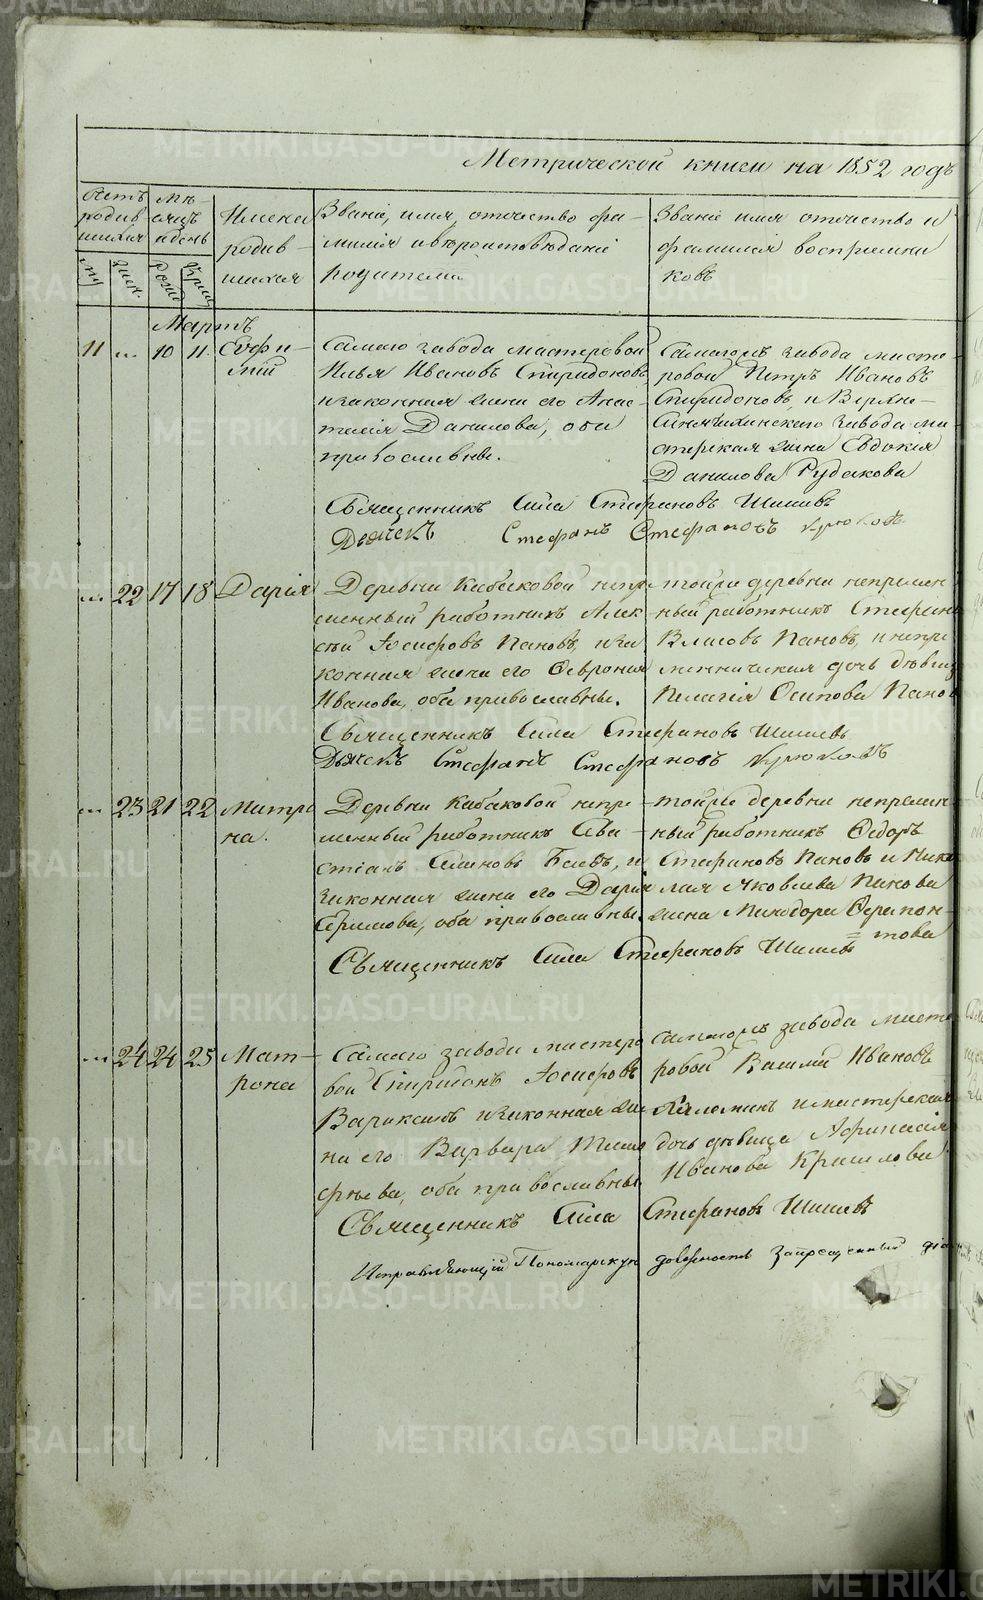 Метрической книги на 1852 годъ
Счетъ родившихся
муж.
жен.
Мѣсяцъ и день
Рожд.
Крещ.
Имена
родив-
шихся
Званіе, имя, отчество фа-
милія и вѣроисповѣданіе
родителей
Званіе имя отчество и
фамилія воспріемни
ковъ
Мартъ
11 " 10 11
Евфи-
мій
Самаго завода мастеровой
Илья Ивановъ Спиридоновъ
и законная жена его Анас-
тасія Данилова, оба
православны.
Самагожъ завода масте-
ровой Петръ Ивановъ
Спиридоновъ, и Верхне-
Синячихинскаго завода ма-
стерская жена Евдокія
Данилова Рудакова
Священникъ Сила Стефановъ Шишевъ
Дьячекъ Стефанъ Стефановъ Крюковъ
" 22 17 18
Дарія
Деревни Кабаковой непре
менный работникъ Алек
сѣй Іосифовъ Пановъ, и за
конная жена его Феврония
Иванова, оба православны.
тойже деревни непремен
ный работникъ Стефанъ
Власовъ Пановъ, и непре
менническая дочь дѣвица
Пелагія Осипова Панов
Священникъ Сила Стефановъ Шишевъ
Дьячекъ Стефанъ Стефановъ Крюковъ
" 23 21 22
Матро
на.
Деревни Кабаковой непре
менный работникъ Сева-
стіанъ Семеновъ и
законная жена его Дарія
Ефимова, оба православны
тойже деревни непремен
ный работникъ Федоръ
Стефановъ Пановъ и Нико
лая Яковлева Панова
жена Минодора Ферапон-
това
Священникъ Сила Стефановъ Шишевъ
" 24 24 25
Мат-
рона
Самаго завода мастеро
вой Спиридонъ Іосифовъ
Вараксинъ и законная же
на его Варвара Тимо
фѣева, оба православны
самагожъ завода масте
ровой Василій Ивановъ
и мастерская
дочь дѣвица Афанасія
Иванова
Священникъ Сила Стефановъ Шишевъ
Исправляющій Пономарскую должность запрещенный діа
METRIKI.GASO-URAL.RU